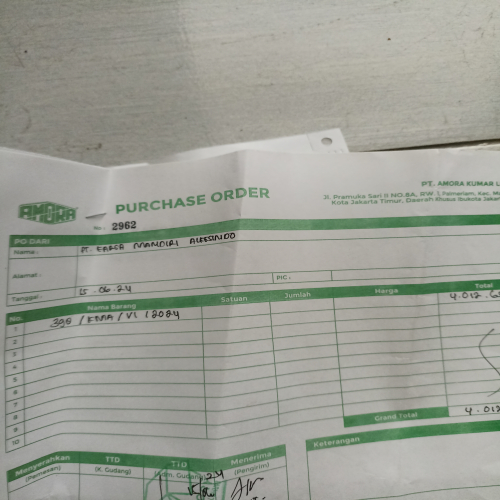 AMORA
PURCHASE ORDER
No. 2962
PT. AMORA KUMAR L
Jl. Pramuka Sari II NO.8A, RW. 1, Palmeriam, Kec. M
Kota Jakarta Timur, Daerah Khusus Ibukota Jakar
PO DARI
Name : PT. MANDIRI
Alamat :
PIC :
Tanggal : 15.06.24
No. Nama Barang Satuan Jumlah Harga Total
1 398 / / VI / 2024 4.012.6
2
3
4
5
6
7
8
9
10
Grand Total 4.012
Menyerahkan TTD TTD Menerima
(Pemesan) (K. Gudang) (Adm. Gudang) (Pengirim)
Keterangan